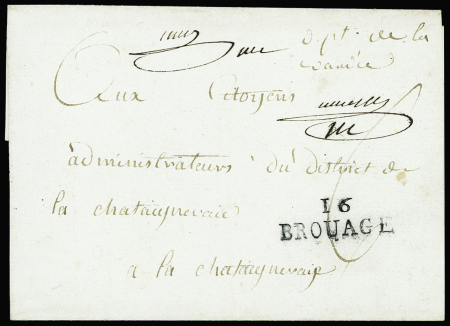 dpt. de la
vandée
Aux Citoyens
administrateurs du district de
la chataigneraie
16
BROUAGE
a la chataigneraie